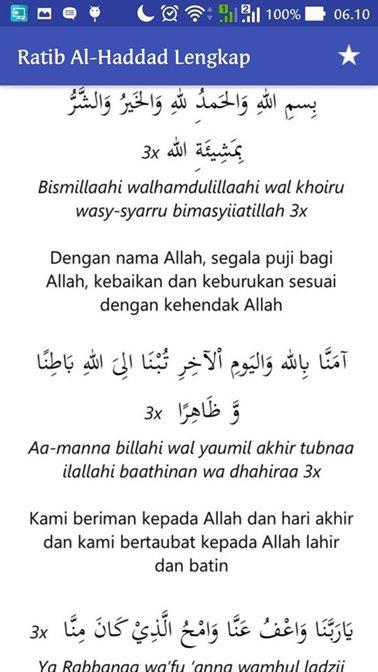 100% 06.10
Ratib Al-Haddad Lengkap
بِسمِ اللهِ وَالحَمدُ للهِ وَالخَيرُ وَالشَّرُّ
بِمَشِيئَةِ الله 3x
Bismillaahi walhamdulillaahi wal khoiru
wasy-syarru bimasyiiatillah 3x
Dengan nama Allah, segala puji bagi
Allah, kebaikan dan keburukan sesuai
dengan kehendak Allah
آمَنَّا بِاللهِ وَاليَومِ اْلآخِرِ تُبْنَا اِلىَ اللهِ بَاطِنًا
وَّ ظَاهِرًا 3x
Aa-manna billahi wal yaumil akhir tubnaa
ilallahi baathinan wa dhahiraa 3x
Kami beriman kepada Allah dan hari akhir
dan kami bertaubat kepada Allah lahir
dan batin
يَارَبَّنَا وَاعْفُ عَنَّا وَامْحُ الَّذِيْ كَانَ مِنَّا 3x
Ya Rabbanaa wa'fu 'anna wamhul ladzii